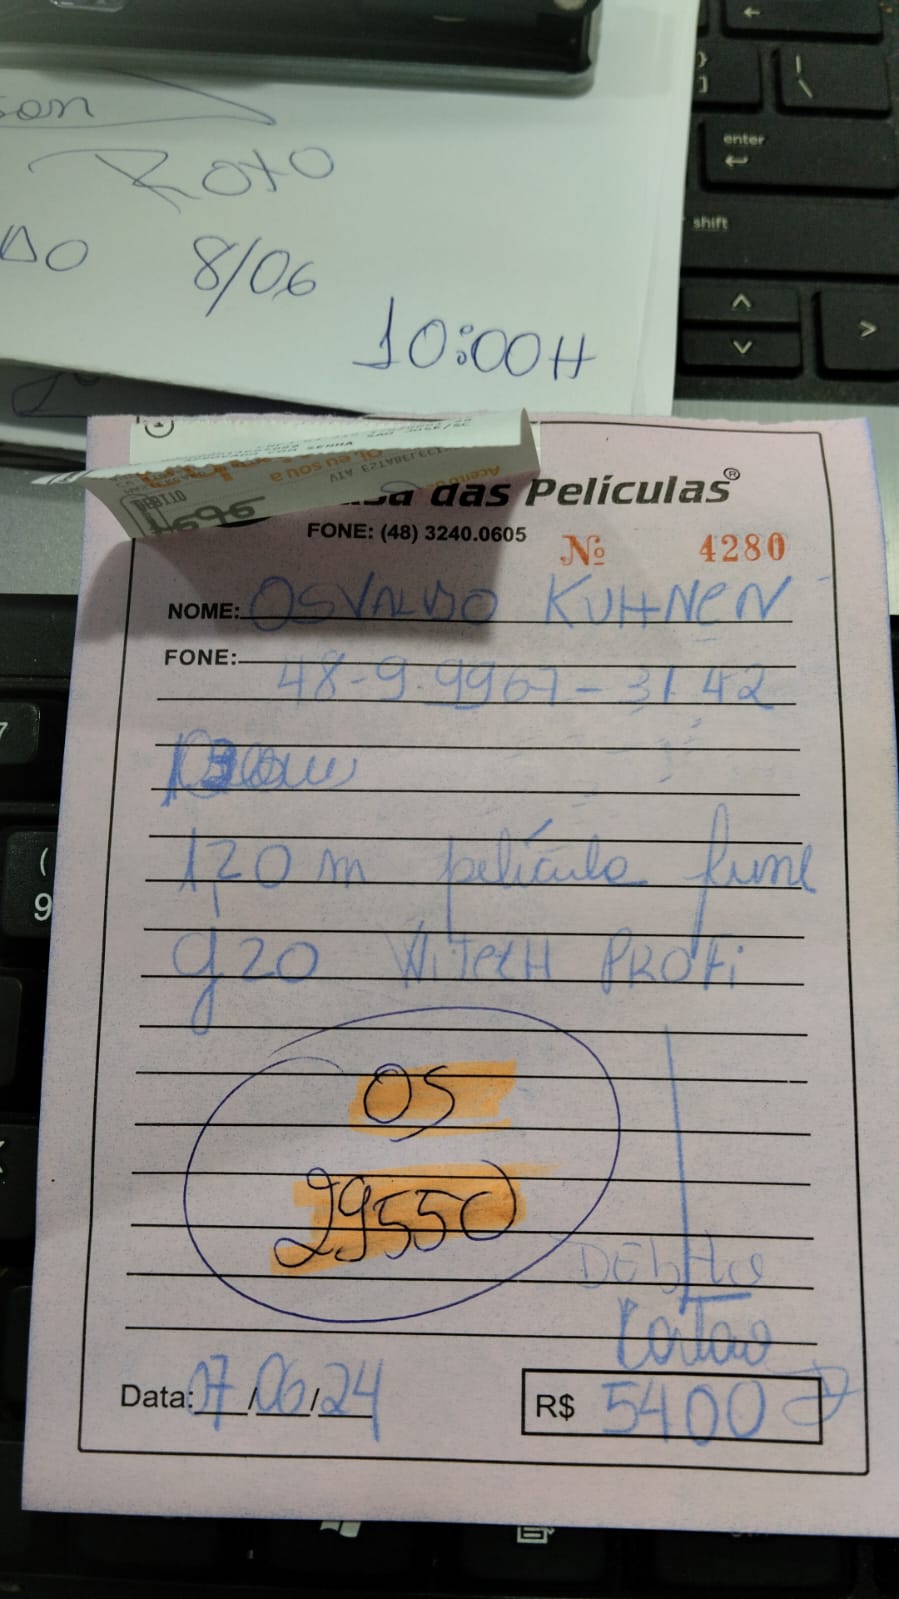 son
Roto
DO 8/06
10:00H
enter
shift
DEBITO
Rede
das Películas®
FONE: (48) 3240.0605
Nº 4280
NOME: OSVALDO KUHNEN
FONE:
48-9.9967-3142
1,20 m película fume
g20 WiTecH PROFi
OS
29550
DEbito
Cartao
Data: 07/06/24
R$ 5400